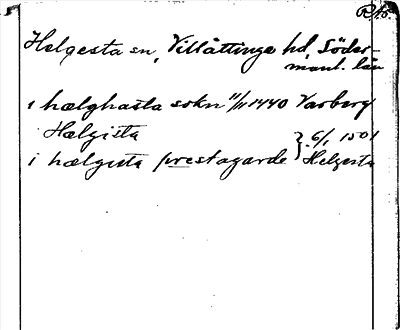 Rik.
Helgesta sn, Villåttinge hd, Söder-
manl. län
i hælghasta sokn 11/11 1440 Varberg
Hælgista
i hælgista prestagarde } 6/1 1501 Helgesta